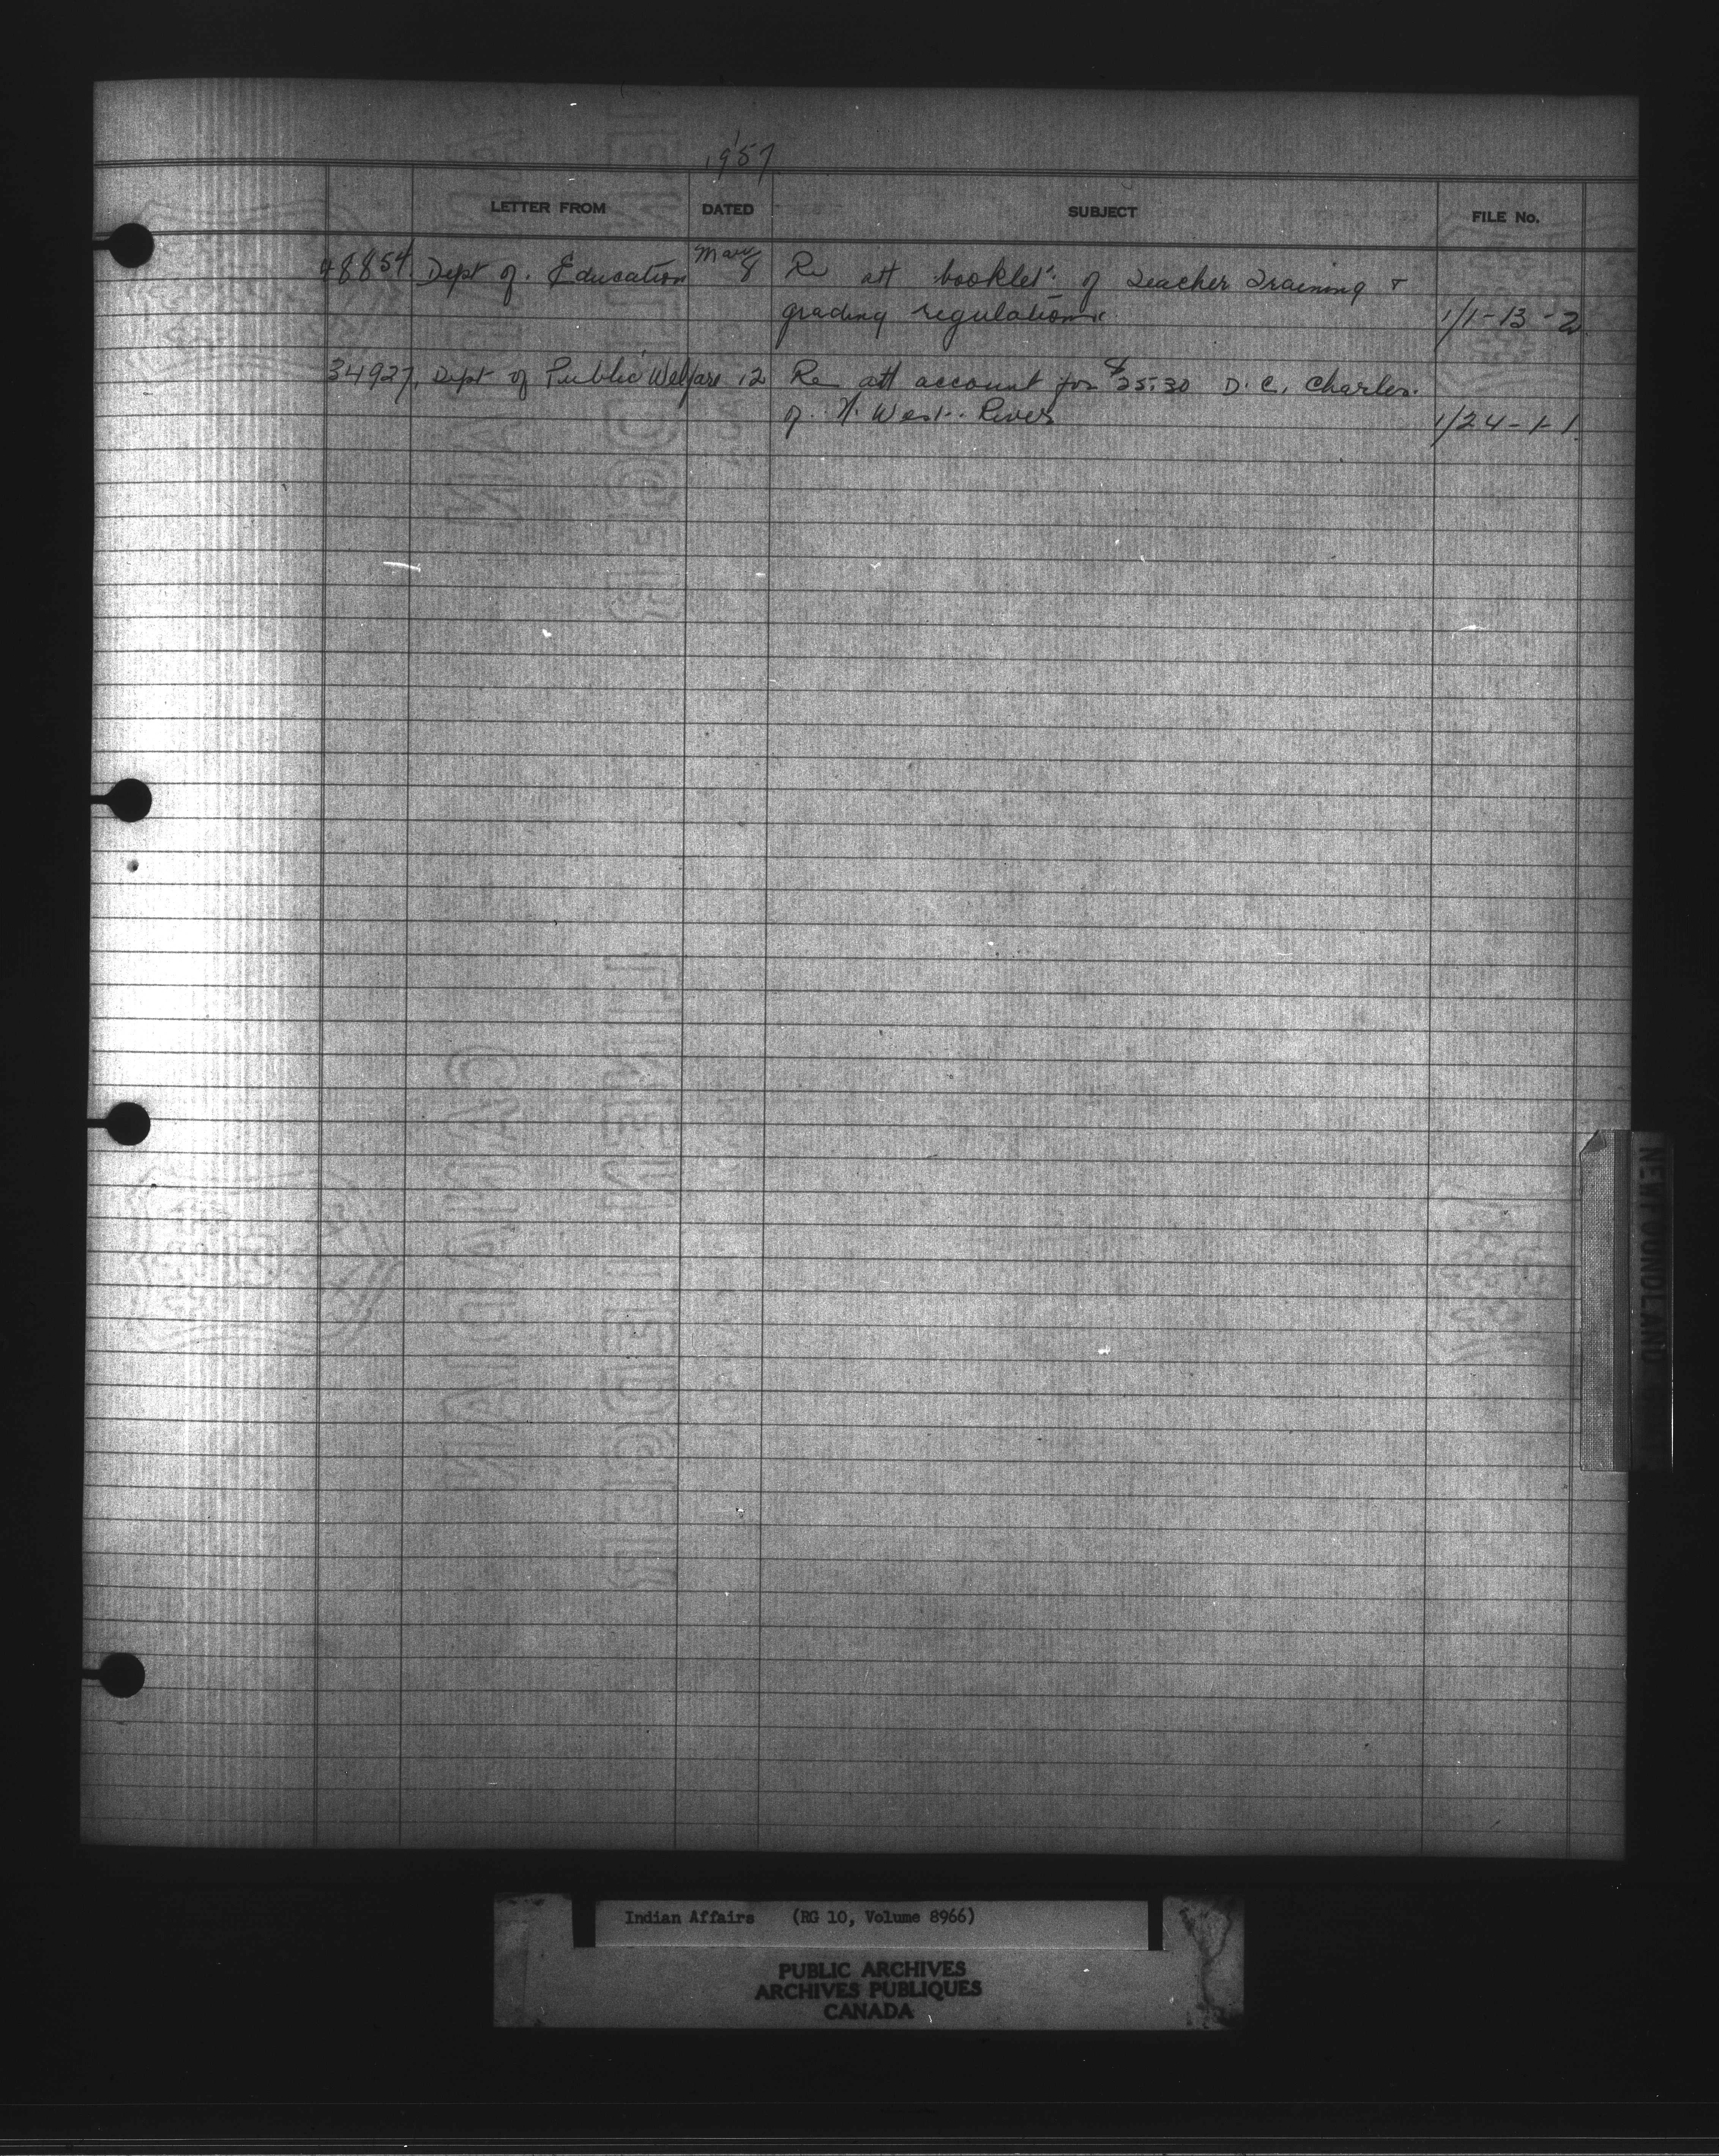 1957
LETTER FROM DATED SUBJECT FILE No.
48854. Dept of. Education Mar 8 Re att booklet: of Teacher Training +
grading regulations. 1/1-13-2
34927. Dept of Public Welfare 12 Re att account for $25.30 D. C. Charles.
of. N. West. River 1/24-1-1.
NEWFOUNDLAND
Indian Affairs (RG 10, Volume 8966)
PUBLIC ARCHIVES
ARCHIVES PUBLIQUES
CANADA